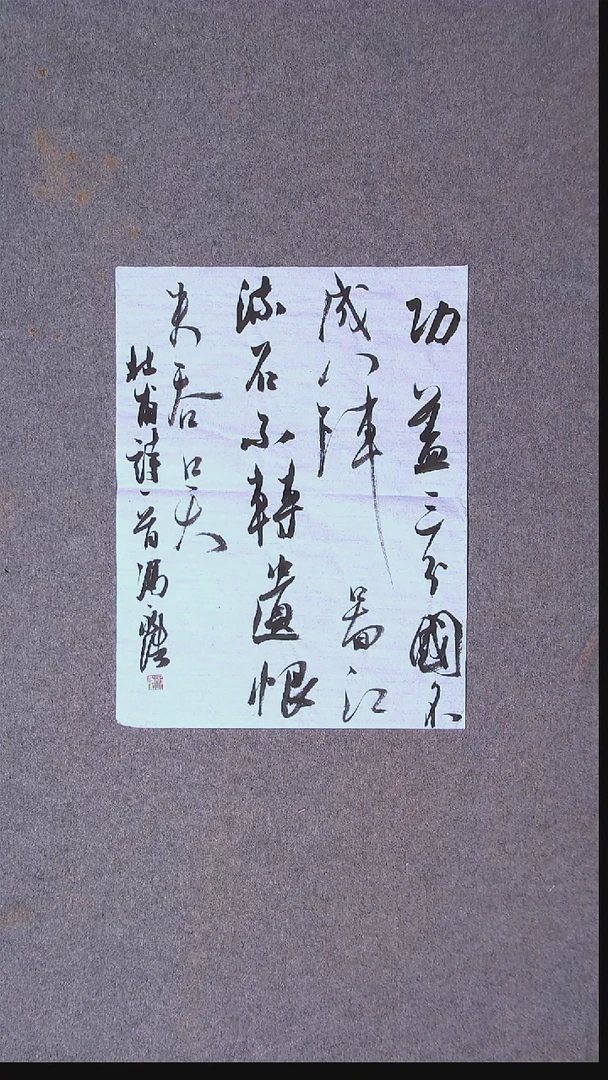 功盖三分國名
成八陣啚江
流石不轉遺恨
失吞吴
杜甫詩一首馮